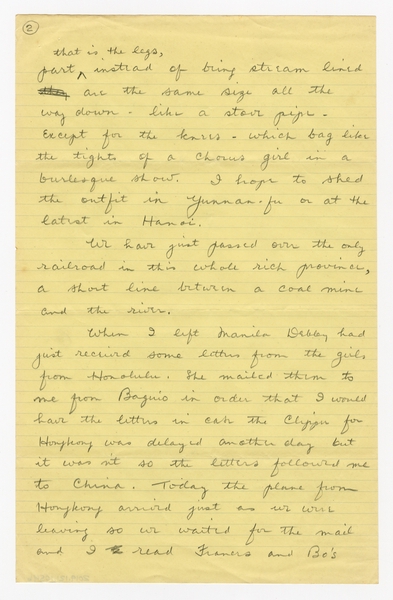 2
that is the legs,
part ^ instead of being stream lined
are the same size all the
way down - like a stove pipe -
Except for the knees - which bag like
the tights of a chorus girl in a
burlesque show. I hope to shed
the outfit in Yunnan-fu or at the
latest in Hanoi.
We have just passed over the only
railroad in this whole rich province,
a short line between a coal mine
and the river.
When I left Manila Debby had
just received some letters from the girls
from Honolulu. She mailed them to
me from Baguio in order that I would
have the letters in case the Clipper for
Hongkong was delayed another day but
it wasn't so the letters followed me
to China. Today the plane from
Hongkong arrived just as we were
leaving so we waited for the mail
and I read Frances and Bo's